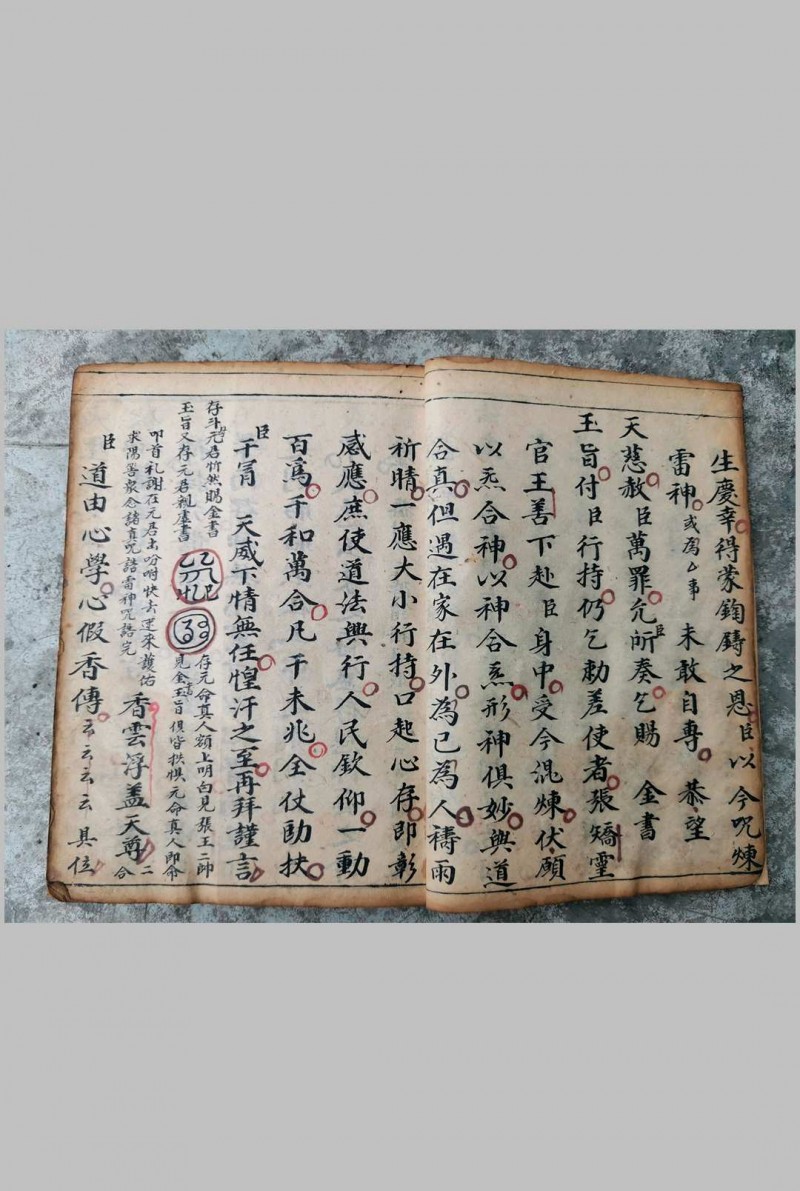 生慶幸得蒙鈞鑄之恩臣以今呪煉
雷神或為厶事 未敢自專 恭望
天慈赦臣萬罪允臣所奏乞賜 金書
玉旨付臣行持仍乞勅差使者張矯霊
官王善下赴臣身中受今混煉伏願
以炁合神以神合炁形神俱妙與道
合真但遇在家在外為己為人禱雨
祈晴一應大小行持口起心存即彰
感應庶使道法興行人民欽仰一動
百為千和萬合凡干未兆全仗助扶
臣干冐 天威下情無任惶汗之至再拜謹言
存斗元君忻然賜金書
玉旨又存元君親虛書
存元命真人額上明白見張王二帥
見金玉旨俱皆拱惧元命真人即命
叩首礼謝在元君主吩咐快去速來護佑
求陽善衆念諸真呪諸雷神呪語完
香雲浮盖天尊二
合
臣道由心學心假香傳云云云云具位